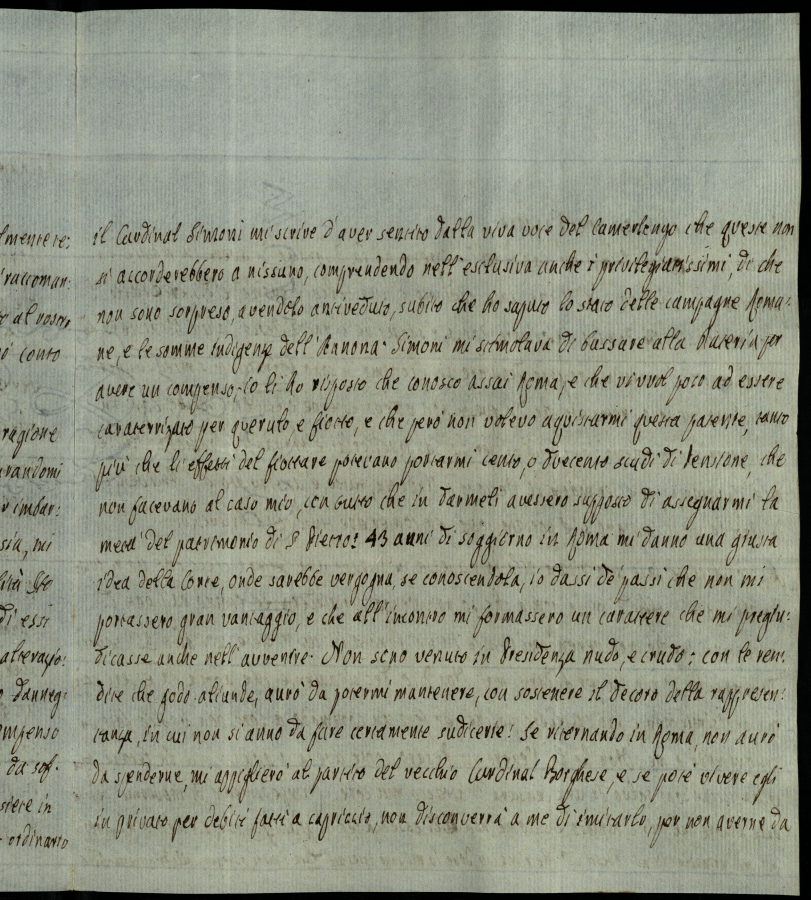 lmente re:
raccoman:
te al vostro
conto
ragione
urandomi
r imbar:
sia, mi
di essi
alterazio:
danneg:
mpenso
da sof.
siere in
ordinario
il Cardinal Simoni mi scrive d'aver sentito dalla viva voce del Camerlengo che queste non
si accorderebbero a nissuno, comprendendo nell'esclusiva anche i privilegiatissimi, di che
non sono sorpreso, avendolo antiveduto, subito che ho saputo lo stato delle campagne Roma:
ne, e le somme indigenze dell'Annona. Simoni mi stimolava di bussare alla Dateria per
avere un compenso. Io li ho risposto che conosco assai Roma, e che vi vuol poco ad essere
caratterizzato per querulo e fiotto, e che però non volevo aquistarmi questa patente, tanto
più che li effetti del fiottare potevano portarmi cento, o duecento scudi di Pensione, che
non facevano al caso mio, con tutto che in darmeli avessero supposto di assegnarmi la
metà del patrimonio di S. Pietro: 43 anni di soggiorno in Roma mi danno una giusta
idea della Corte, onde sarebbe vergogna, se conoscendola, io dassi de' passi che non mi
portassero gran vantaggio, e che all'incontro mi formassero un carattere che mi pregiu:
dicasse anche nell'avvenire. Non sono venuto in Presidenza nudo, e crudo; con le ren:
dite che godo aliunde, avrò da potermi mantenere, con sostenere il decoro della rappresen:
tanza, in cui non si anno da fare certamente sudicerie! Se ritornando in Roma, non avrò
da spenderne, mi appiglierò al partito del vecchio Cardinal Borghese, e se potè vivere egli
in privato per debiti fatti a capriccio, non disconverrà a me di imitarlo, per non averne da